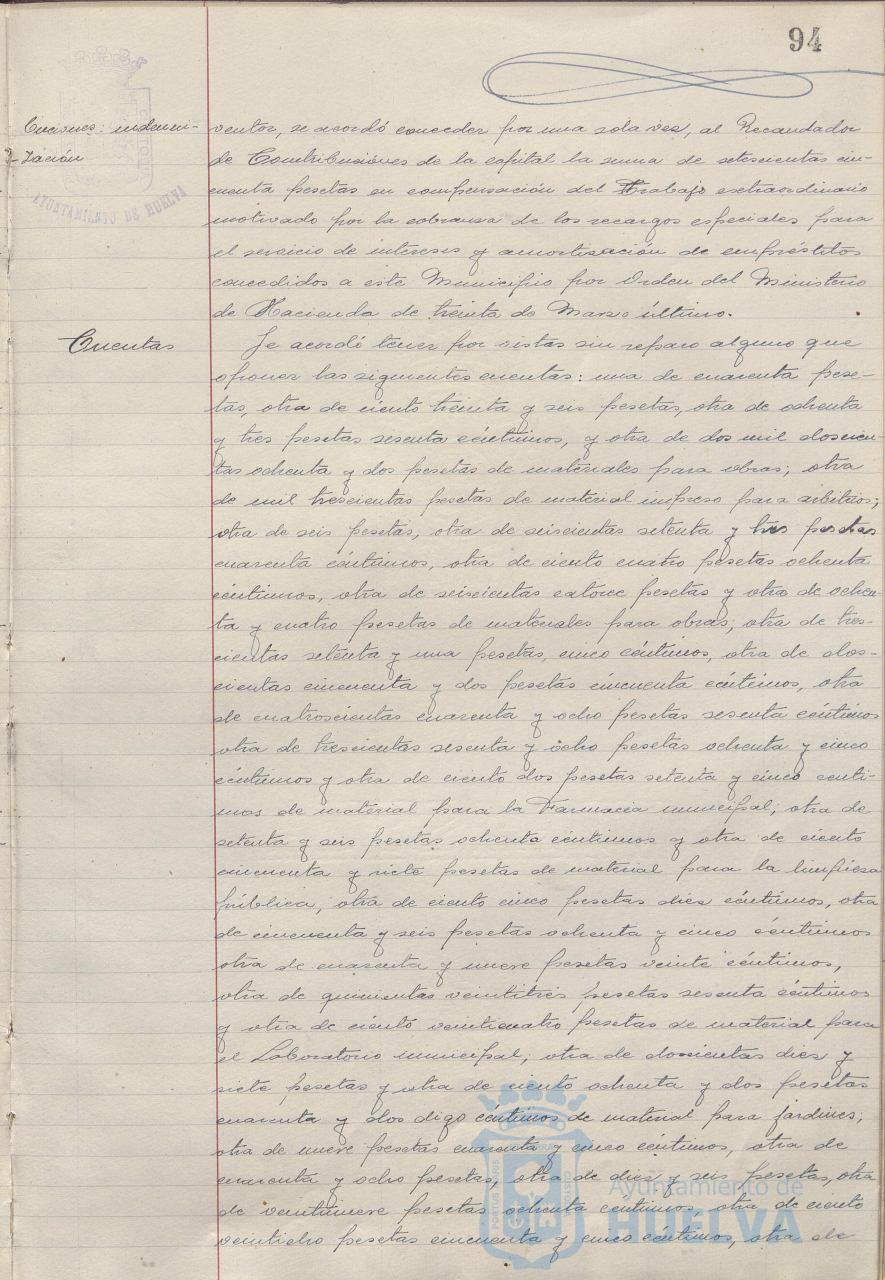 94
buciones: indemni-
zación
AYUNTAMIENTO DE HUELVA
ventor, se acordó conceder por una sola vez, al Recaudador
de Contribuciónes de la capital la suma de setescientas cin-
cuenta pesetas en compensación del trabajo extraordinario
motivado por la cobranza de los recargos especiales para
el servicio de intereses y amortización de empréstitos
concedidos a este Municipio por Orden del Ministerio
de Hacienda de treinta de Marzo último.
Cuentas
Se acordó tener por vistas sin reparo alguno que
oponer las siguientes cuentas: una de cuarenta pese-
tas, otra de ciento treinta y seis pesetas, otra de ochenta
y tres pesetas sesenta céntimos, y otra de dos mil doscien-
tas ochenta y dos pesetas de materiales para obras; otra
de mil trescientas pesetas de material impreso para arbitrios;
otra de seis pesetas, otra de seiscientas setenta y tres pesetas
cuarenta céntimos, otra de ciento cuatro pesetas ochenta
céntimos, otra de seiscientas catorce pesetas y otra de ochen-
ta y cuatro pesetas de materiales para obras; otra de tres-
cientas setenta y una pesetas, cinco céntimos, otra de dos-
cientas cincuenta y dos pesetas cincuenta céntimos, otra
de cuatroscientas cuarenta y ocho pesetas sesenta céntimos
otra de trescientas sesenta y ocho pesetas ochenta y cinco
céntimos y otra de ciento dos pesetas setenta y cinco centi-
mos de material para la Farmacia municipal; otra de
setenta y seis pesetas ochenta céntimos y otra de ciento
cincuenta y siete pesetas de material para la limpieza
pública; otra de ciento cinco pesetas diez céntimos, otra
de cincuenta y seis pesetas ochenta y cinco céntimos
otra de cuarenta y nueve pesetas veinte céntimos,
otra de quinientas veintitrés pesetas sesenta céntimos
y otra de ciento veinticuatro pesetas de material para
el Laboratorio municipal; otra de doscientas diez y
siete pesetas y otra de ciento ochenta y dos pesetas
cuarenta y dos digo céntimos de material para jardines;
otra de nueve pesetas cuarenta y cinco céntimos, otra de
cuarenta y ocho pesetas, otra de diez y seis pesetas, otra
de veintinueve pesetas ochenta céntimos, otra de ciento
veintiocho pesetas cincuenta y cinco céntimos, otra de
Ayuntamiento de
HUELVA